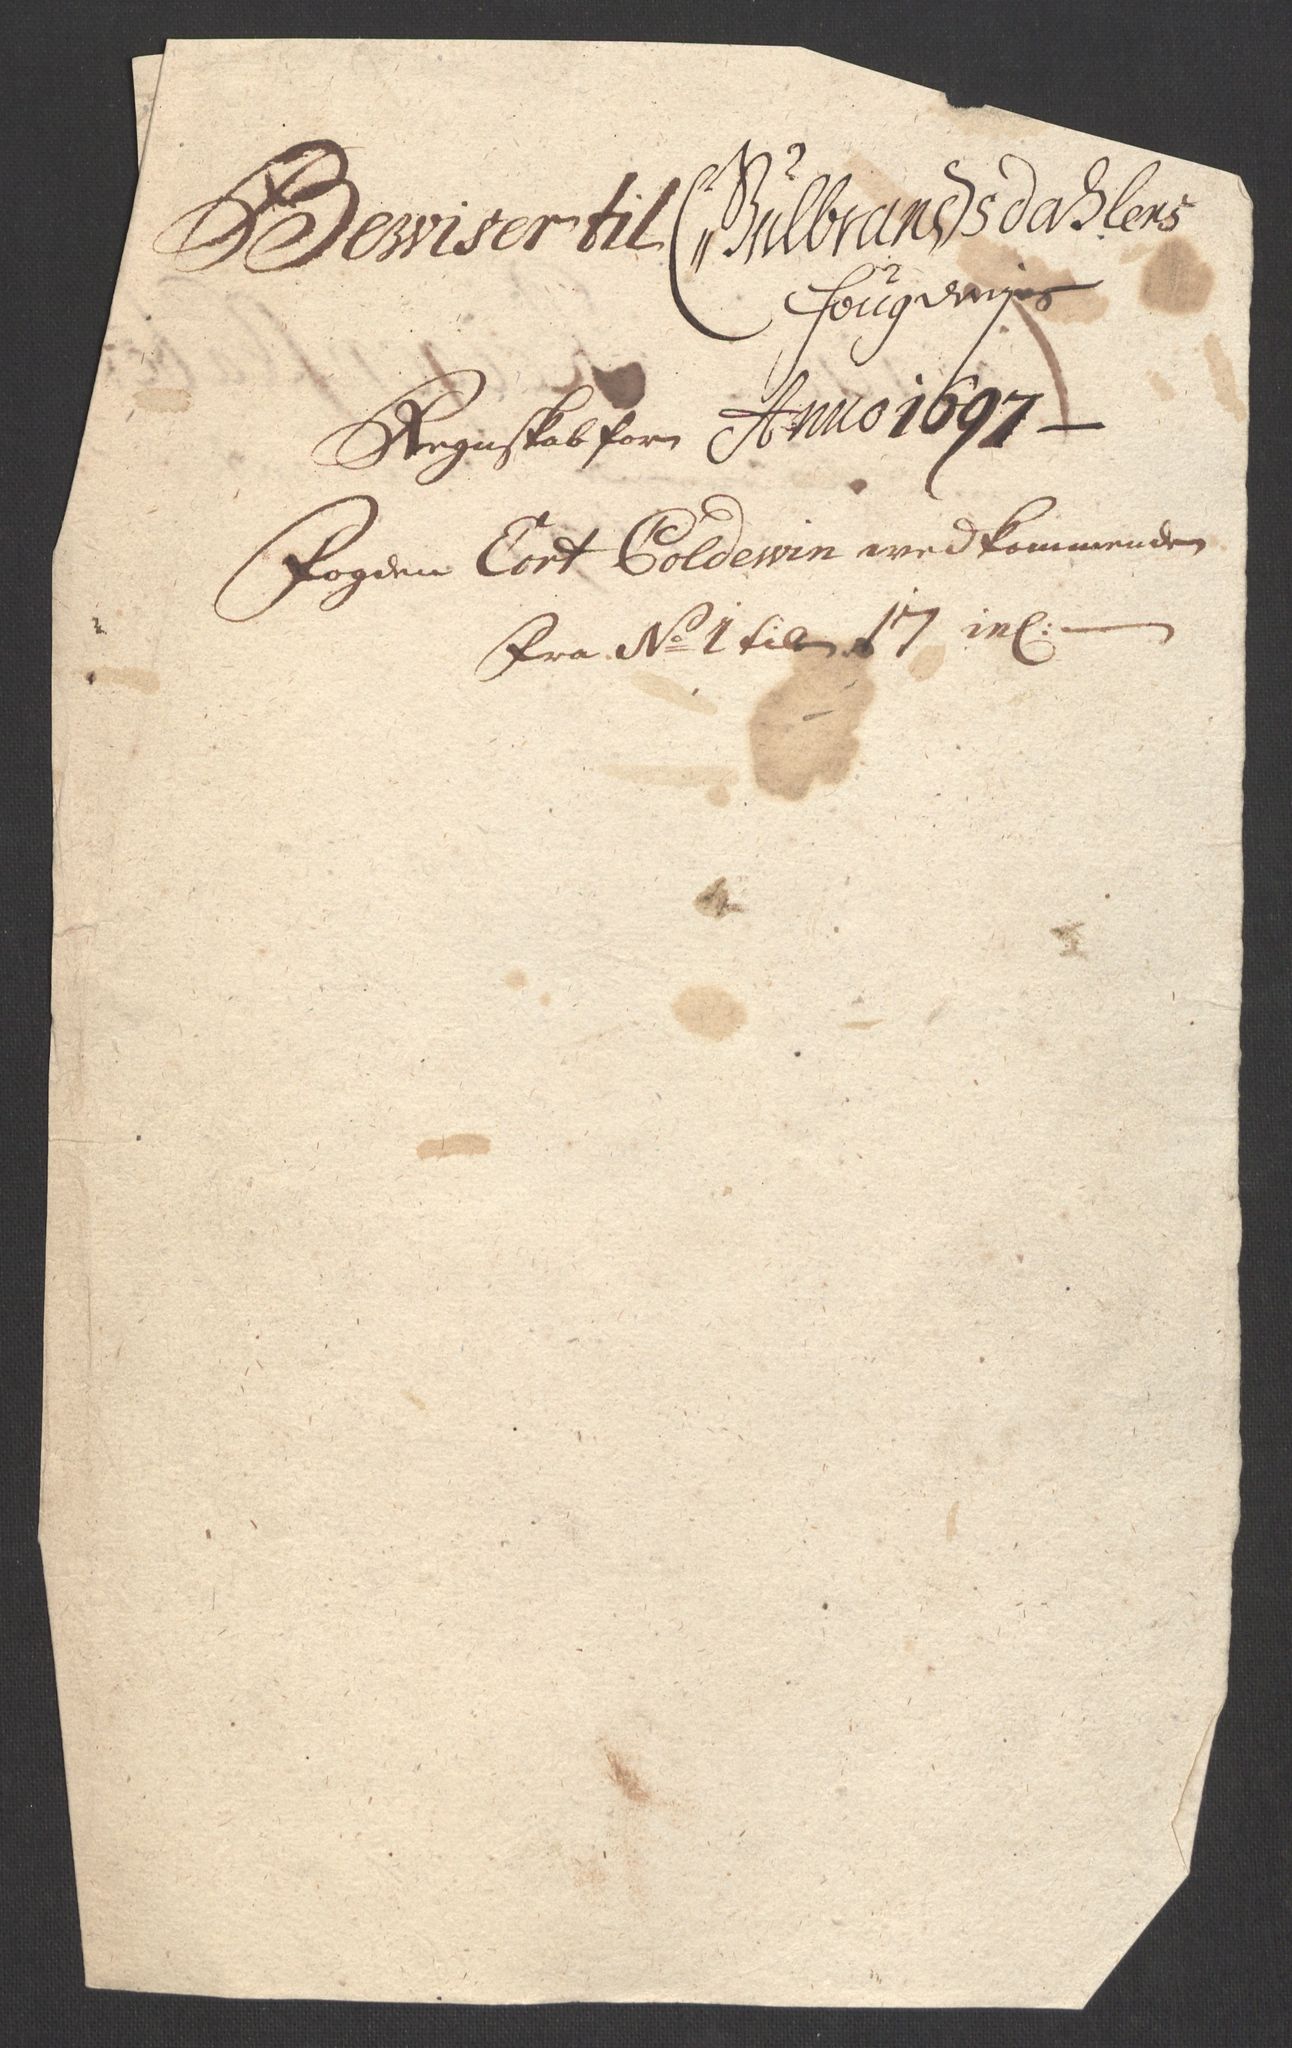 Bewiser til Gulbrandsdahlens
fougderijes
Regnskab for Anno 1697
Fogden Cort Coldewin wedkommenden
Fra No 1 til 17 incl: